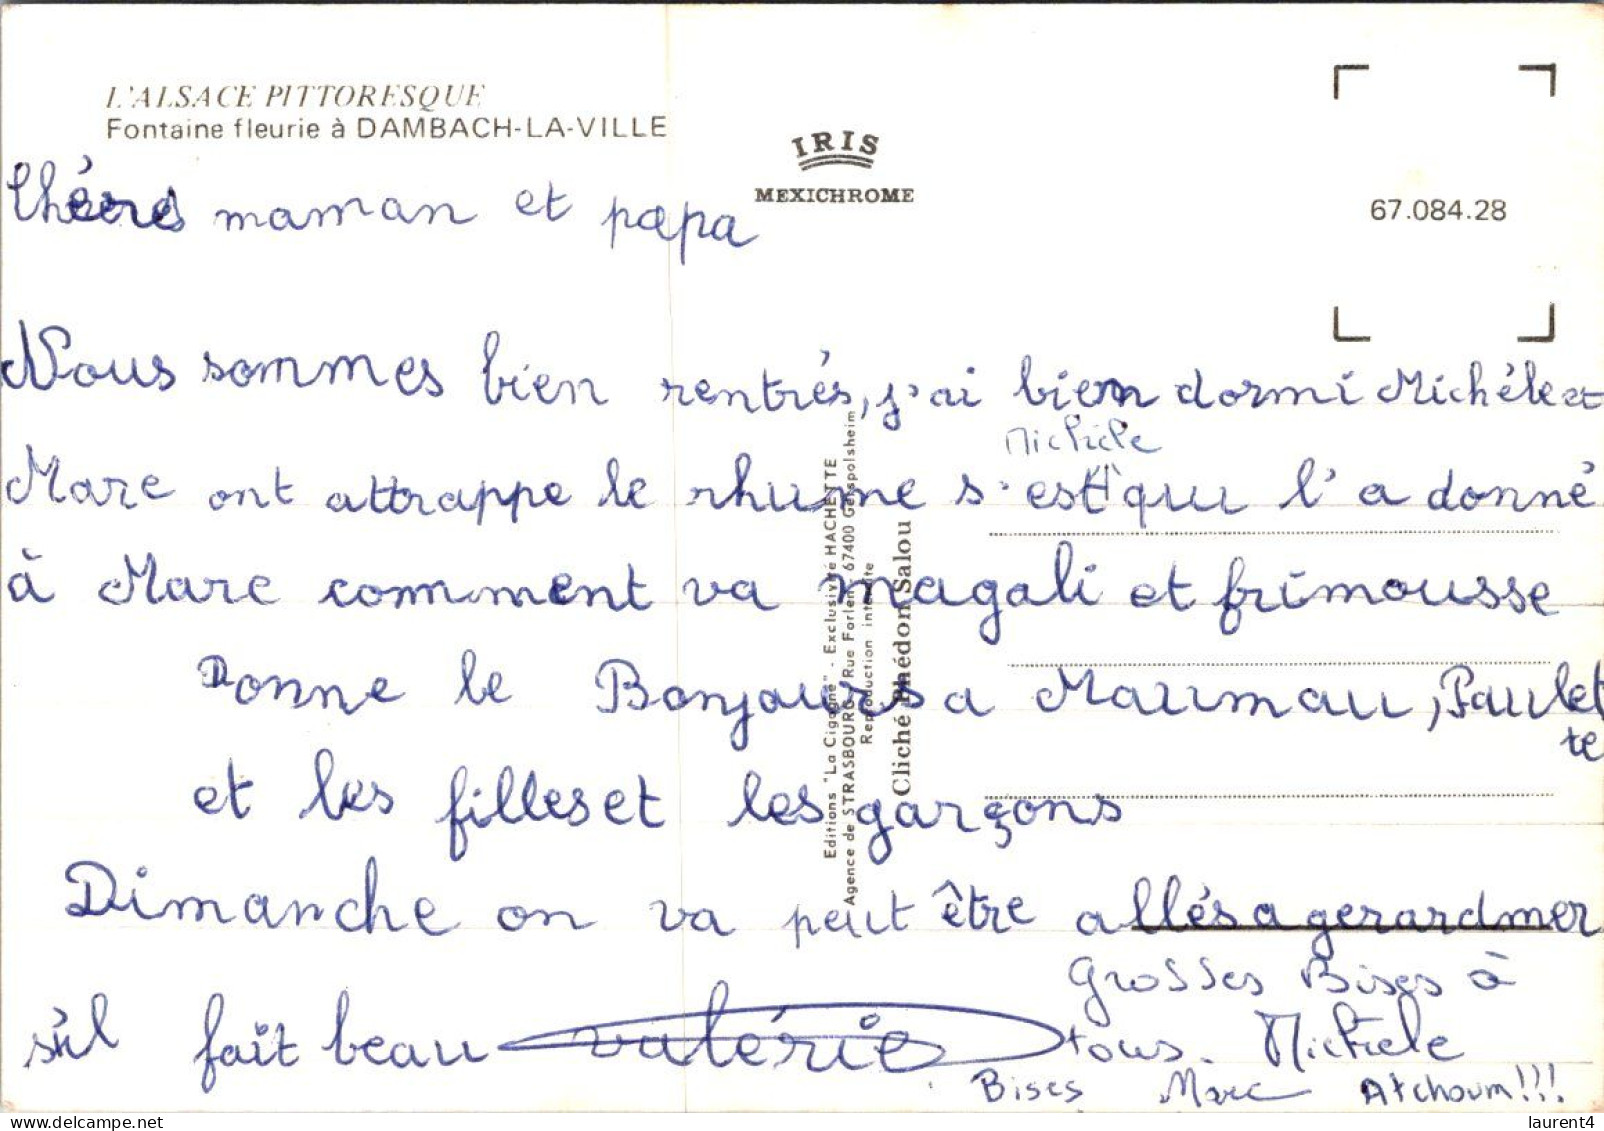 L'ALSACE PITTORESQUE
Fontaine fleurie à DAMBACH-LA-VILLE
IRIS
MEXICHROME
67.084.28
Editions "La Cigogne" - Exclusivité HACHETTE
Agence de STRASBOURG Rue Forlen 67400 Geispolsheim
Reproduction interdite
Cliché Phédon Salou
Chères maman et papa
Nous sommes bien rentrés, j'ai bien dormi Michèle et
Marc ont attrappe le rhume s'est Michèle qui l'a donné
à Marc comment va magali et frimousse
Donne le Bonjours a Maumau, Paulet
te
et les filles et les garçons
Dimanche on va peut être allés a gerardmer
s'il fait beau valérie
Grosses Bises à
tous. Michèle
Bises Marc Atchoum!!!
laurent4